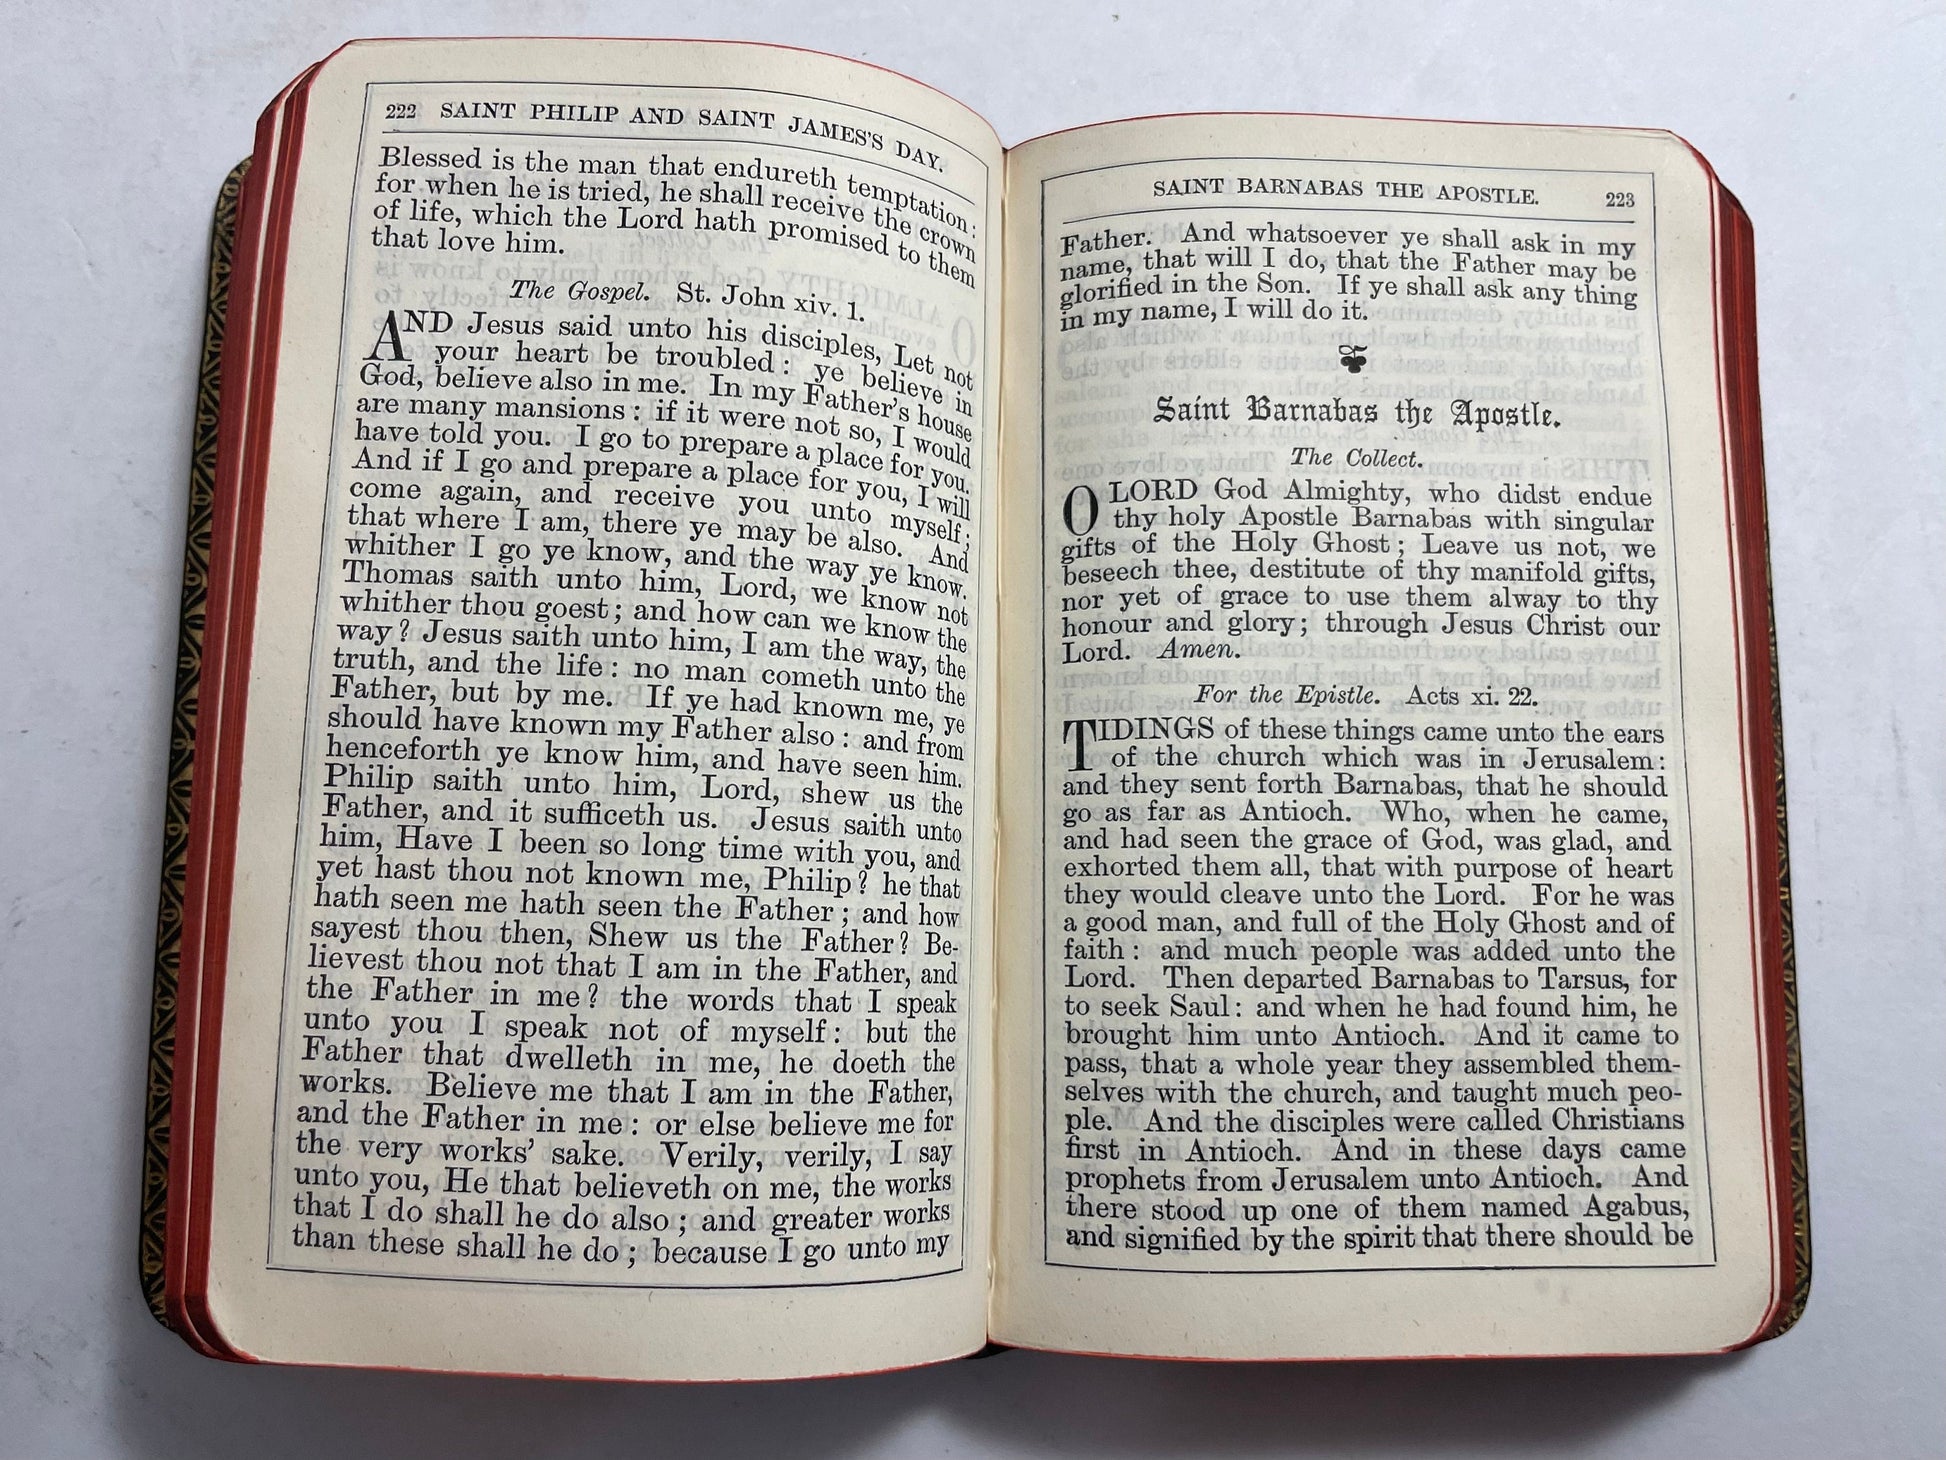 222 SAINT PHILIP AND SAINT JAMES'S DAY.
Blessed is the man that endureth temptation:
for when he is tried, he shall receive the crown
of life, which the Lord hath promised to them
that love him.
The Gospel. St. John xiv. 1.
AND Jesus said unto his disciples, Let not
your heart be troubled: ye believe in
God, believe also in me. In my Father's house
are many mansions: if it were not so, I would
have told you. I go to prepare a place for you.
And if I go and prepare a place for you, I will
come again, and receive you unto myself;
that where I am, there ye may be also. And
whither I go ye know, and the way ye know.
Thomas saith unto him, Lord, we know not
whither thou goest; and how can we know the
way? Jesus saith unto him, I am the way, the
truth, and the life: no man cometh unto the
Father, but by me. If ye had known me, ye
should have known my Father also: and from
henceforth ye know him, and have seen him.
Philip saith unto him, Lord, shew us the
Father, and it sufficeth us. Jesus saith unto
him, Have I been so long time with you, and
yet hast thou not known me, Philip? he that
hath seen me hath seen the Father; and how
sayest thou then, Shew us the Father? Be-
lievest thou not that I am in the Father, and
the Father in me? the words that I speak
unto you I speak not of myself: but the
Father that dwelleth in me, he doeth the
works. Believe me that I am in the Father,
and the Father in me: or else believe me for
the very works' sake. Verily, verily, I say
unto you, He that believeth on me, the works
that I do shall he do also; and greater works
than these shall he do; because I go unto my
SAINT BARNABAS THE APOSTLE. 223
Father. And whatsoever ye shall ask in my
name, that will I do, that the Father may be
glorified in the Son. If ye shall ask any thing
in my name, I will do it.
Saint Barnabas the Apostle.
The Collect.
O LORD God Almighty, who didst endue
thy holy Apostle Barnabas with singular
gifts of the Holy Ghost; Leave us not, we
beseech thee, destitute of thy manifold gifts,
nor yet of grace to use them alway to thy
honour and glory; through Jesus Christ our
Lord. Amen.
For the Epistle. Acts xi. 22.
TIDINGS of these things came unto the ears
of the church which was in Jerusalem:
and they sent forth Barnabas, that he should
go as far as Antioch. Who, when he came,
and had seen the grace of God, was glad, and
exhorted them all, that with purpose of heart
they would cleave unto the Lord. For he was
a good man, and full of the Holy Ghost and of
faith: and much people was added unto the
Lord. Then departed Barnabas to Tarsus, for
to seek Saul: and when he had found him, he
brought him unto Antioch. And it came to
pass, that a whole year they assembled them-
selves with the church, and taught much peo-
ple. And the disciples were called Christians
first in Antioch. And in these days came
prophets from Jerusalem unto Antioch. And
there stood up one of them named Agabus,
and signified by the spirit that there should be